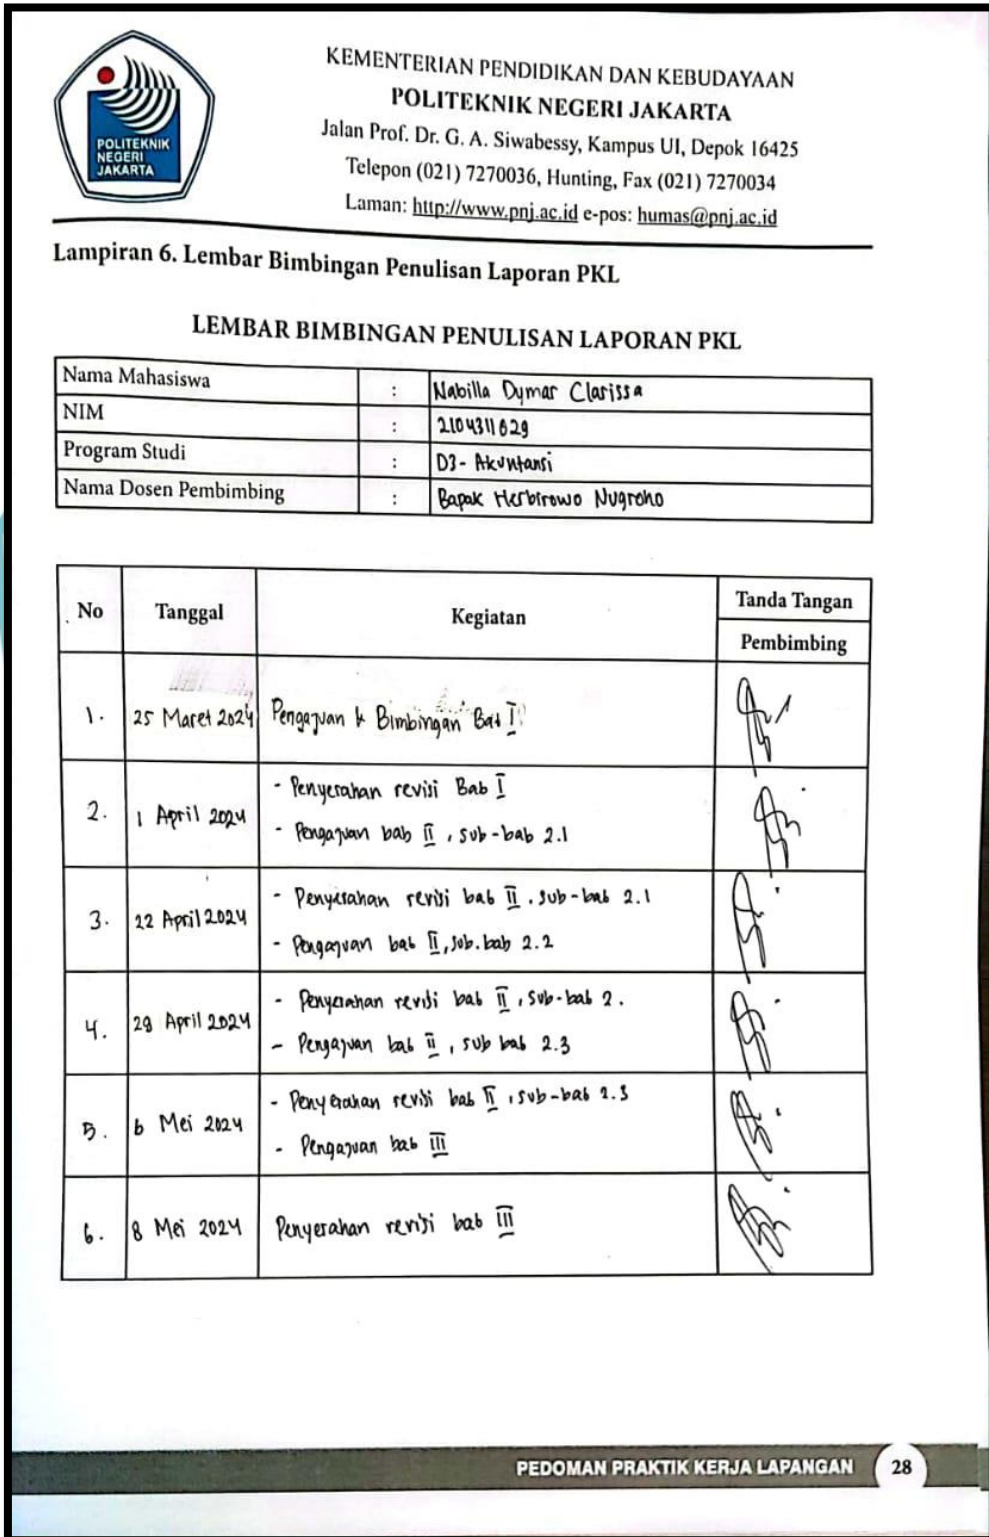 POLITEKNIK
NEGERI
JAKARTA
KEMENTERIAN PENDIDIKAN DAN KEBUDAYAAN
POLITEKNIK NEGERI JAKARTA
Jalan Prof. Dr. G. A. Siwabessy, Kampus UI, Depok 16425
Telepon (021) 7270036, Hunting, Fax (021) 7270034
Laman: http://www.pnj.ac.id e-pos: humas@pnj.ac.id
Lampiran 6. Lembar Bimbingan Penulisan Laporan PKL
LEMBAR BIMBINGAN PENULISAN LAPORAN PKL
Nama Mahasiswa : Nabilla Dymar Clarissa
NIM : 2104311029
Program Studi : D3- Akuntansi
Nama Dosen Pembimbing : Bapak Herbirowo Nugroho
No Tanggal Kegiatan Tanda Tangan
Pembimbing
1. 25 Maret 2024 Pengajuan & Bimbingan Bab I
2. 1 April 2024 - Penyerahan revisi Bab I
- Pengajuan bab II, sub-bab 2.1
3. 22 April 2024 - Penyerahan revisi bab II, sub-bab 2.1
- Pengajuan bab II, sub.bab 2.2
4. 29 April 2024 - Penyerahan revisi bab II, sub-bab 2.
- Pengajuan bab II, sub bab 2.3
5. 6 Mei 2024 - Penyerahan revisi bab II, sub-bab 2.3
- Pengajuan bab III
6. 8 Mei 2024 Penyerahan revisi bab III
PEDOMAN PRAKTIK KERJA LAPANGAN 28